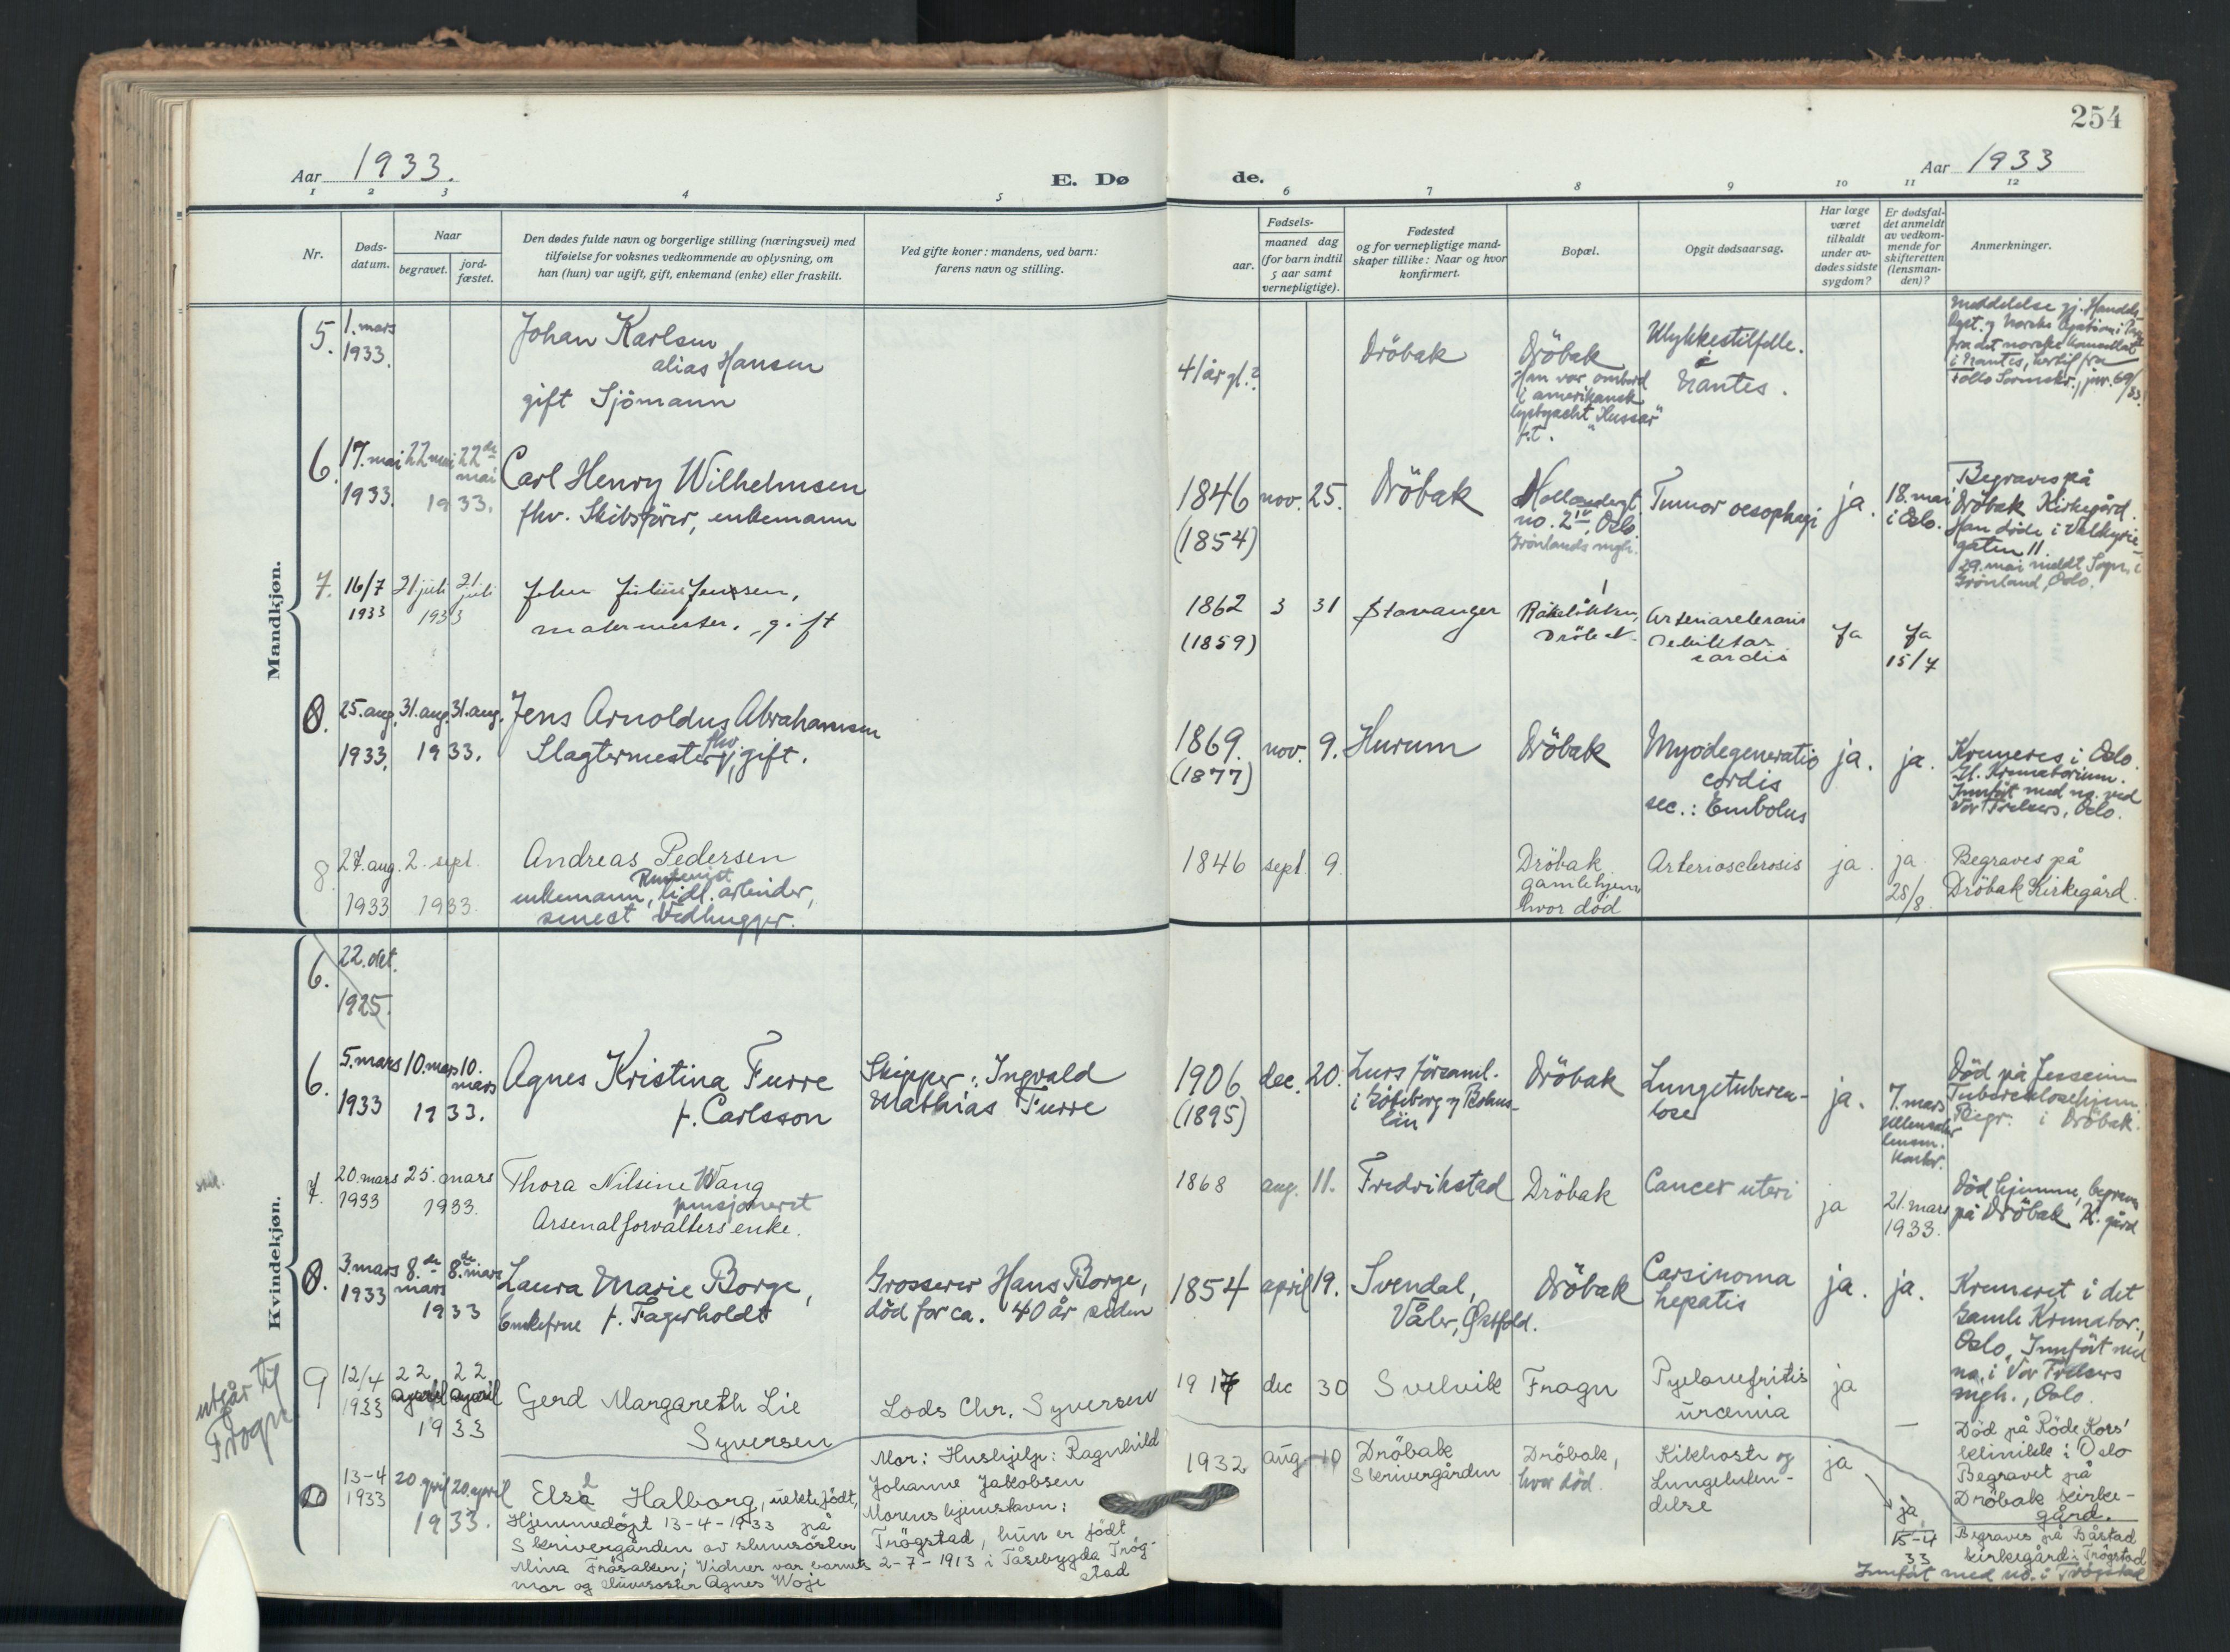 254
Aar 1933.
E. Dø
de.
Aar 1933
1 2 3 4 5 6 7 8 9 10 11 12
Nr.
Døds-
datum.
Naar
begravet.
jord-
fæstet.
Den dødes fulde navn og borgerlige stilling (næringsvei) med
tilføielse for voksnes vedkommende av oplysning, om
han (hun) var ugift, gift, enkemand (enke) eller fraskilt.
Ved gifte koner: mandens, ved barn:
farens navn og stilling.
Fødsels-
aar.
maaned dag
(for barn indtil
5 aar samt
vernepligtige).
Fødested
og for vernepligtige mand-
skaper tillike: Naar og hvor
konfirmert.
Bopæl.
Opgit dødsaarsag.
Har læge
været
tilkaldt
under av-
dødes sidste
sygdom?
Er dødsfal-
det anmeldt
av vedkom-
mende for
skifteretten
(lensman-
den)?
Anmerkninger.
Mandkjøn.
5.
1. mars
1933.
Johan Karlsen
alias Hansen
gift Sjömann
41 år gl.?
Dröbak
Dröbak
Han var ombord
i amerikansk
lystyacht "Hussar"
f.t.
Ulykkestilfelle.
i
Nantes.
Meddelelse gj. Handels-
fra det norske Konsulat
i Nantes,
6.
17. mai 22 mai 22de mai
1933. 1933.
Carl Henry Wilhelmsen
fhv. Skibsfører, enkemann
1846 nov. 25.
(1854)
Dröbak
Hollendergt.
no. 2 IV, Oslo.
Grönlands mgh.
Tumor oesophagi
ja.
18. mai
i Oslo.
Begraves på
Dröbak Kirkegård.
Han døde i Valkyrie-
gaten 11.
29. mai meldt Sogn. i
Grönland, Oslo.
7.
16/7 21. juli 21. juli
1933 1933
John Julius Jenssen,
malermester. gift
1862 3 31
(1859)
Stavanger
Dröbak
Debilitas
cordis
Ja
Ja
15/7
8.
25. aug. 31. aug. 31. aug.
1933. 1933.
Jens Arnoldus Abrahamsen
Slagtermester fhv., gift.
1869. nov. 9.
(1877)
Hurum
Dröbak
Myodegeneratio
cordis
sec.: Embolus
ja.
ja.
Kremeres i Oslo.
Gl. Krematorium.
Innfört med no. ved
Vor Frelsers, Oslo.
8
27. aug. 2. sept.
1933 1933.
Andreas Pedersen
enkemann, tidl. arbeider,
senest Vedhugger.
1846 sept. 9.
Dröbak
gamlehjem
hvor död
Arteriosclerosis
ja.
ja
28/8.
Begraves på
Dröbak Kirkegård.
Kvindekjøn.
6.
22. okt.
1925.
6.
5. mars 10. mars 10. mars
1933 1933.
Agnes Kristina Furre
f. Carlsson
Skipper: Ingvald
Mathias Furre
1906 dec. 20.
(1895)
Lurs församl.
i Göteborg og Bohus-
län
Dröbak
Lungetuberku-
lose
ja.
7. mars
Ullensaker
lensm.
kontor.
Död på Jessheim
Tuberkulosehjem.
Begr. i Dröbak.
7.
20. mars 25. mars
1933 1933.
Thora Nilsine Wang
pensjonert
Arsenalforvalters enke.
1868 aug. 11.
Fredrikstad
Dröbak
Cancer uteri
ja
21. mars
1933.
Död hjemme, begraves
på Dröbak K. gård
8.
3. mars 8.de mars 8.de mars
1933 1933
Laura Marie Borge,
Enkefrue f. Fagerholdt
Grosserer Hans Borge,
död for ca. 40 år siden
1854 april 19.
Svendal,
Våler, Østfold.
Dröbak
Carsinoma
hepatis
ja.
ja.
Kremeret i det
Gamle Kremator.,
Oslo, Innfört med
no. i Vor Frelsers
mgh., Oslo.
utgår til
Frogn
9
12/4 22 22
1933 april april
1933
Gerd Margareth Lie
Syversen
Lods Chr. Syversen
1917 dec 30
Svelvik
Frogn
Pyelonefritis
uremia
ja
—
Död på Röde Kors'
klinikk i Oslo
Begravet på
Dröbak kirke-
gård.
13-4 20 april 20. april
1933 1933.
Elsa Halborg, uekte födt,
Hjemmedöpt 13-4-1933 på
Skrivergården av
Vidner var barnets
mor og Agnes Woje
Mor: Hushjelp: Ragnhild
Johanne Jakobsen
Morens hjemstavn:
Trögstad, hun er födt
2-7-1913 i Båsebygda Trög-
stad
1932 aug 10
Dröbak
Skrivergården
Dröbak,
hvor död.
Kikhoste og
Lungebeten-
delse
ja
ja.
15-4
33
Begraves på Båstad
kirkegård i Trögstad
Innfört med no. i Trögstad